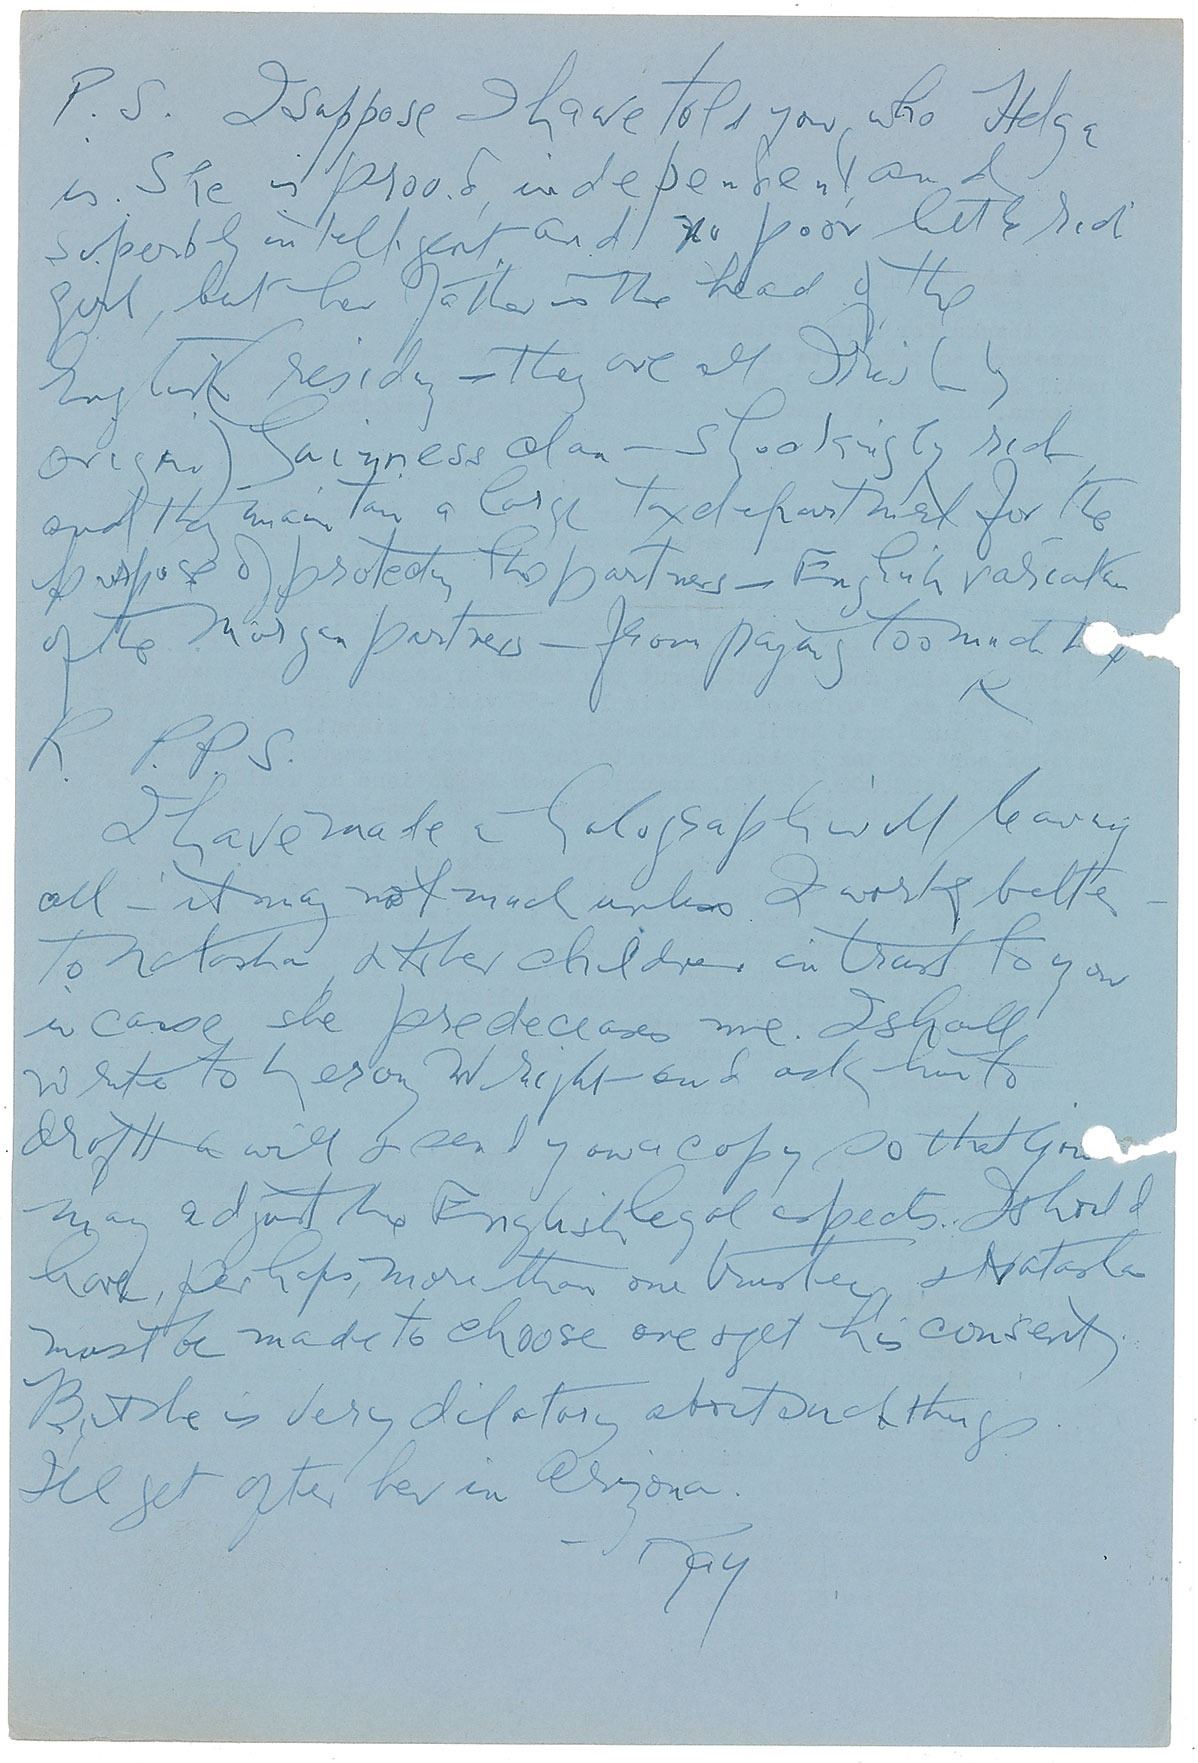 P.S. I suppose I have told you who Helga
is. She is proud, independent and
superbly intelligent and no poor little rich
girl, but her father is the head of the
English (residing – they are all Irish by
origin) Guinness clan – shockingly rich,
and they maintain a large tax department for the
purpose of protecting the partners – English variation
of the Morgan partners – from paying too much tax
R. P.P.S.
I have made a holograph will leaving
all – it may not much unless I work better –
to Natasha, & to her children in trust to you
in case she predeceases me. I shall
write to Wright and ask him to
draft a will & send you a copy so that you
may adjust the English legal aspects. I should
have, perhaps, more than one trustee, & Natasha
must be made to choose one & get his consent.
But she is very dilatory about such things
I'll get after her in Arizona.
– Ray